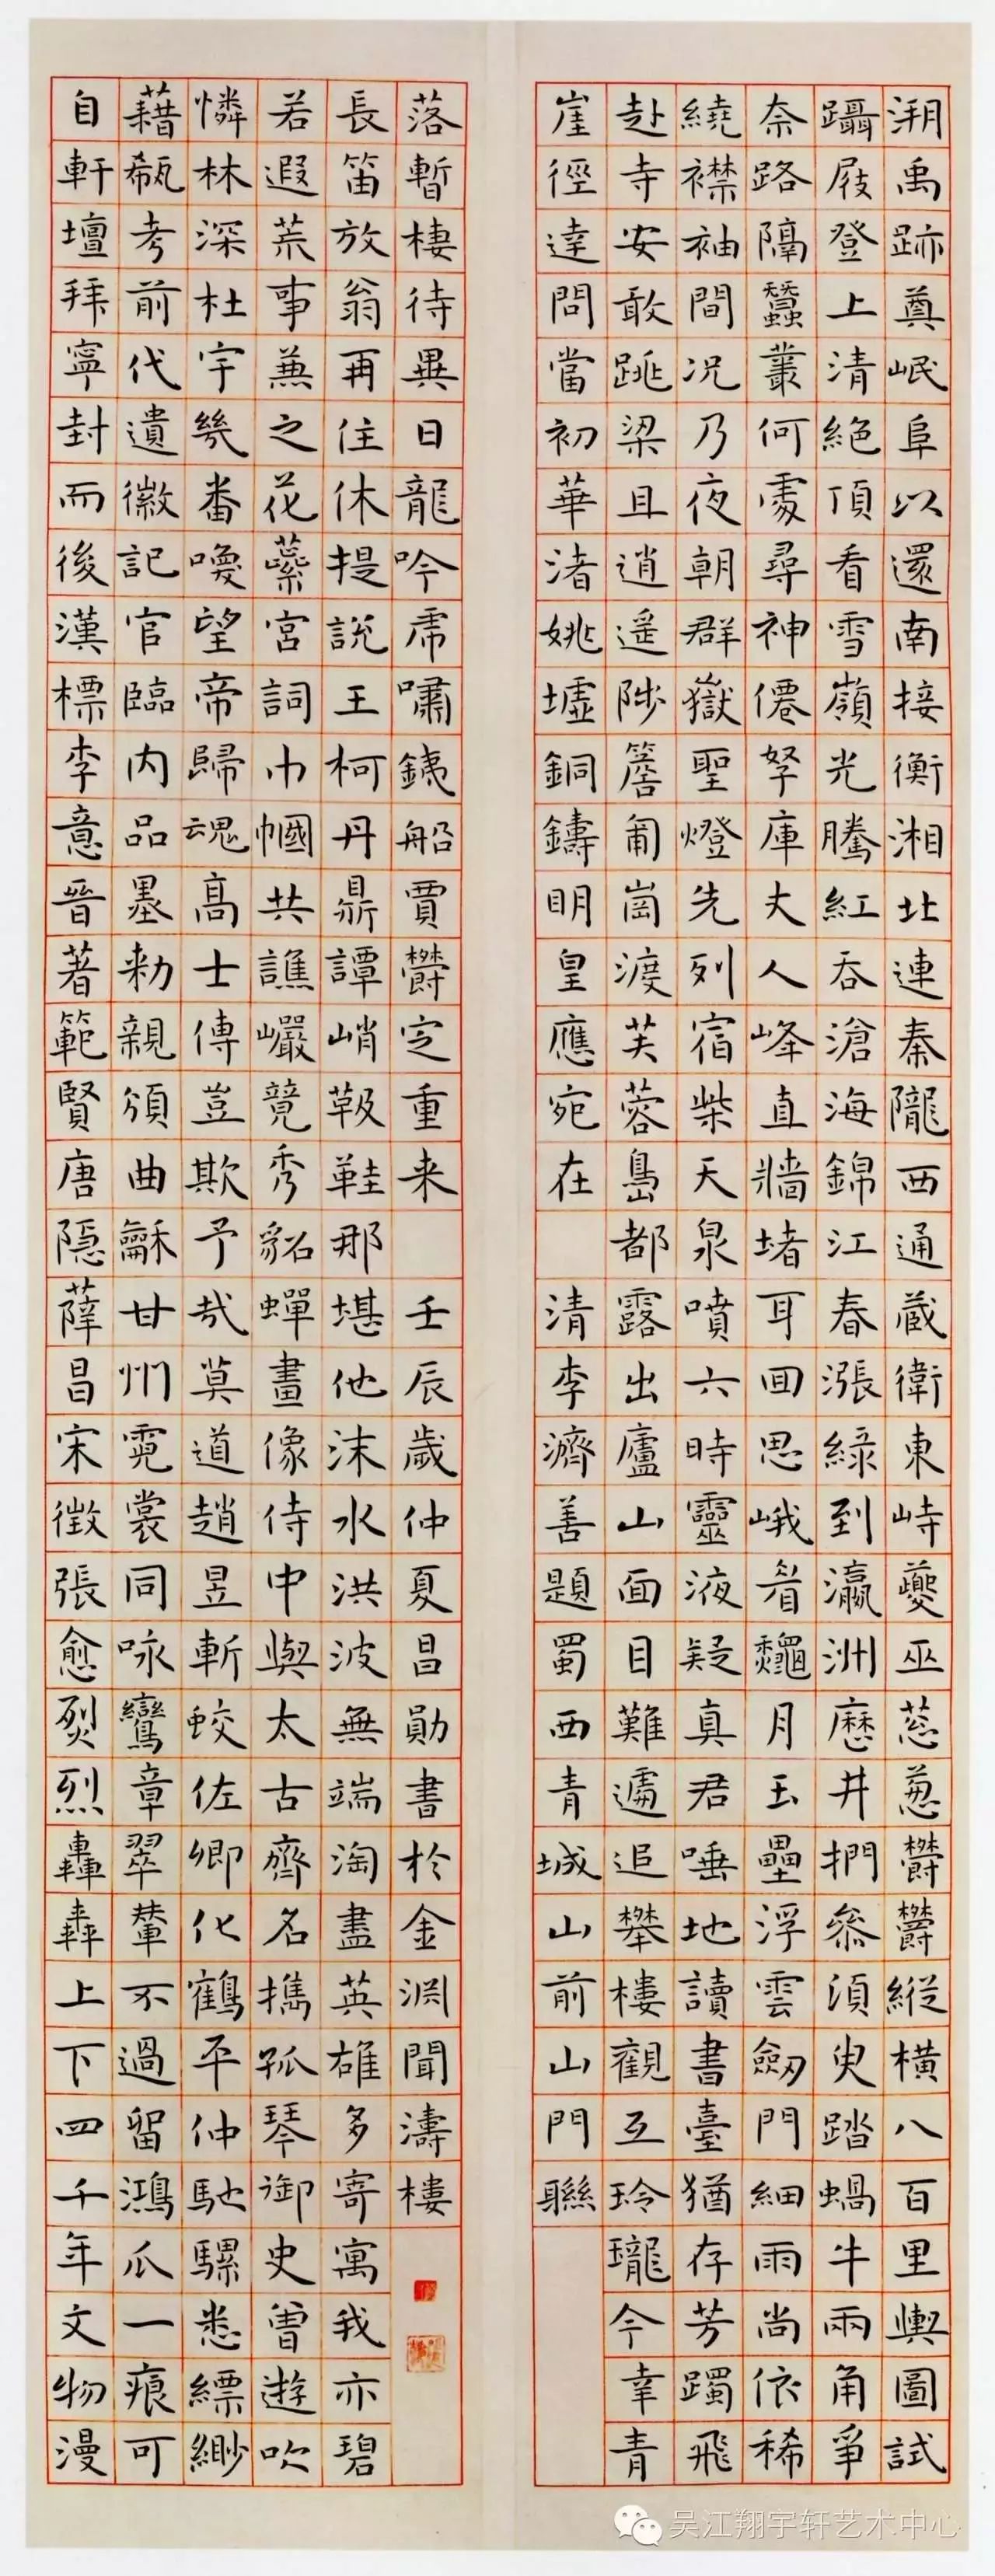 溯禹跡奠岷阜以還南接衡湘北連秦隴西通藏衛東峙夔巫葱葱鬱鬱縱橫八百里輿圖試
躡屐登上清絕頂看雪嶺光騰紅吞滄海錦江春漲綠到瀛洲歷井捫參須臾踏蝸牛兩角爭
奈路隔蠶叢何處尋神僊帑庫丈人峰直牆堵耳回思峨眉龝月玉壘浮雲劒門細雨尚依稀
繞襟袖間況乃夜朝群嶽聖燈先列宿柴天泉噴六時靈液疑真君唾地讀書臺猶存芳躅飛
赴寺安敢跳梁且逍遥陟簷蔔崗渡芙蓉島都露出廬山面目難遽追攀樓觀互玲瓏今幸青
崖徑達問當初華渚姚墟銅鑄明皇應宛在
清李濟善題蜀西青城山前山門聯
自軒壇拜寧封而後漢標李意晉著範賢唐隱薛昌宋徵張愈烈烈轟轟上下四千年文物漫
藉瓻考前代遺徽記官臨內品墨勅親頒曲龢甘州霓裳同咏鸞章翠輦不過留鴻爪一痕可
憐林深杜宇幾番喚望帝歸魂高士傳豈欺予哉莫道趙昱斬蛟佐卿化鶴平仲馳騾悉縹緲
若遐荒事兼之花蘂宮詞巾幗共譙巖競秀貂蟬畫像侍中與太古齊名携孤琴御史曾遊吹
長笛放翁再住休提說王柯丹鼎譚峭靸鞋那堪他沫水洪波無端淘盡英雄多寄寓我亦碧
落暫棲待異日龍吟虎嘯銕船賈鬱定重来
壬辰歲仲夏昌勛書於金淵聞濤樓
吴江翔宇轩艺术中心